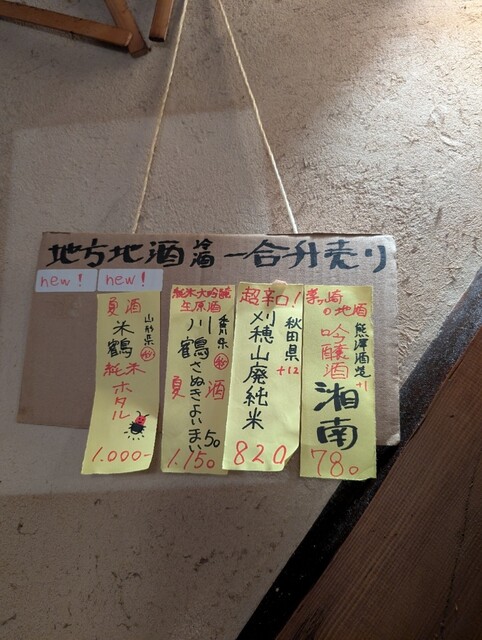 地方地酒 冷酒 一合升売り
new!
new!
茅ヶ崎の地酒
熊澤酒造
吟醸酒
+1
湘南
780
超辛口!
秋田県
+12
刈穂山廃純米
820
純米大吟醸
生原酒
香川県
川鶴さぬきよいまい50
夏酒
1.150
夏酒
山形県
米鶴
純米
ホタル
1.000-